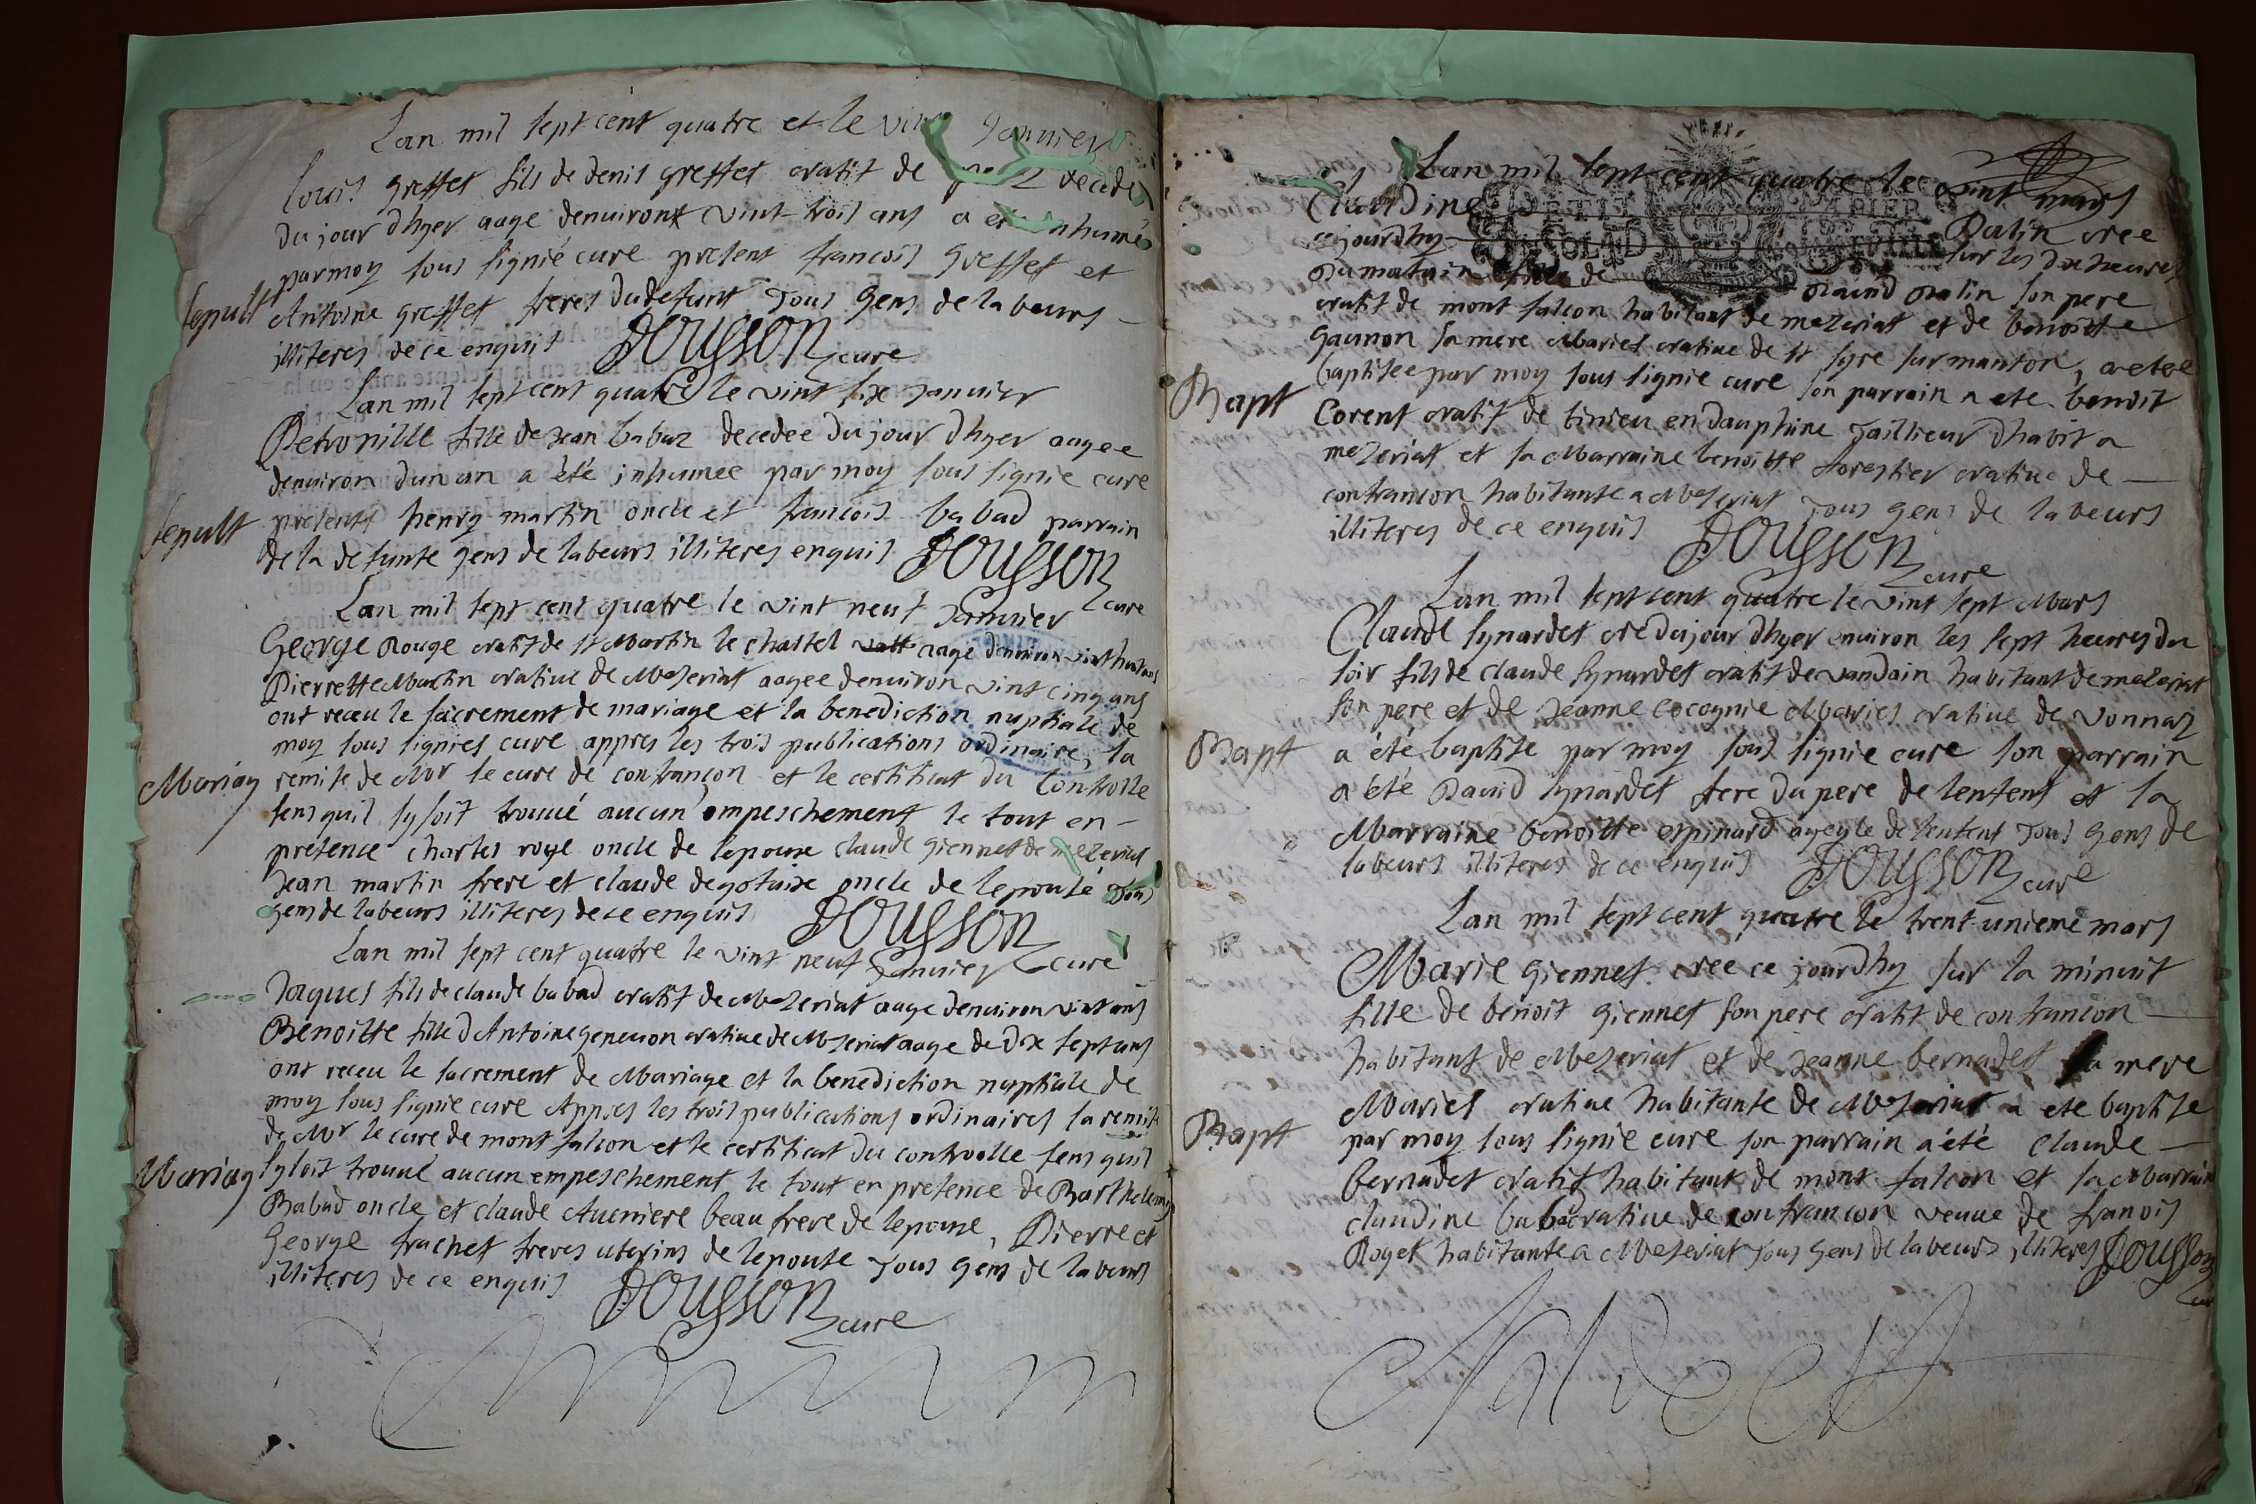 Lan mil sept cent quatre et le vint Janvier
louis greffet fils de denis greffet oratif de decede
du jour dhyer aage denviron vint trois ans a ete inhumé
par moy sous signié curé present francois greffet et
Sepult
Antoine greffet freres du defunt Tous gens de labeurs
illiteres de ce enquis Dousson curé
Lan mil sept cent quatre le vint six Janvier
Petronille fille de Jean babaz decedee du jour dhyer aagee
denviron dun an a été inhumee par moy sous signie curé
Sepult
presents henry martin oncle et francois babad parrain
de la defunte gens de labeurs illiteres enquis Dousson curé
Lan mil sept cent quatre le vint neuf Janvier
George Rouge oratif de st Martin le chastel aage denviron vint huit ans
Pierrette Martin orative de Mezeriat aagee denviron vint cinq ans
ont receu le sacrement de mariage et la benediction nuptiale de
moy sous signies curé appres les trois publications ordinaires, la
Mariag
remise de Mr le curé de confrançon et le certificat du Controlle
sens quil sy soit trouvé aucun empeschement le tout en
presence charles roye oncle de lepoux claude giennet de mezeriat
Jean martin frere et claude degotaix oncle de lepouse Tous
gens de labeurs illiteres de ce enquis Dousson curé
Lan mil sept cent quatre le vint neuf Janvier
Jaques fils de claude babad oratif de Mezeriat aage denviron vint ans
Benoitte fille dAntoine orative de Mezeriat aage de dix sept ans
ont receu le sacrement de Mariage et la benediction nuptiale de
moy sous signie curé Appres les trois publications ordinaires la remise
de Mr le curé de mont falcon et le certificat du controlle sens quil
Mariag
sy soit trouvé aucun empeschement le tout en presence de Barthelemy
Babad oncle et claude Aueniere beau frere de lepoux, Pierre et
George frachet freres uterins de lepouse Tous gens de labeurs
illiteres de ce enquis Dousson curé
Lan mil sept cent quatre le vint mars
Claudine Palin oree
cejourdhy sur les dix heures
du matin fille de David palin son pere
oratif de mont falcon habitant de mezeriat et de benoitte
gaunon sa mere Maries orative de st syre sur manton, a ete
Bapt
baptisee par moy sous signie curé son parrain a ete benoit
Corent oratif de tinieu en dauphine Taillieur dhabit a
mezeriat et sa Marraine benoitte forestier orative de
confrancon habitante a Mezeriat Tous gens de labeurs
illiteres de ce enquis Dousson curé
Lan mil sept cent quatre le vint sept Mars
Claude synardet ore du jour dhyer environ les sept heures du
soir fils de claude synardet oratif de vandain habitant de mezeriat
son pere et de Jeanne cocognie Maries orative de vonnaz
Bapt
a été baptise par moy sous signie curé son parrain
a été David synardet frere du pere de lenfent et la
Marraine benoitte espinard ayeyle de lenfent Tous gens de
labeurs illiteres de ce enquis Dousson curé
Lan mil sept cent quatre le trent unieme mars
Marie Giennet oree ce jourdhy sur la minuit
fille de benoit giennet son pere oratif de confrancon
habitant de Mezeriat et de Jeanne bernadet sa mere
Maries orative habitante de Mezeriat a ete baptise
Bapt
par moy sous signie curé son parrain a été claude
bernadet oratif habitant de mont falcon et sa Marraine
claudine babad orative de confrancon veuve de franois
Roget habitante a Mezeriat Tous gens de labeurs illiteres Dousson
curé